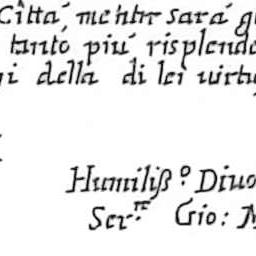 Città, mentre sarà g
tanto più risplende
i della di lei virtu
Humiliß.º Diuo
Ser.re Gio: M